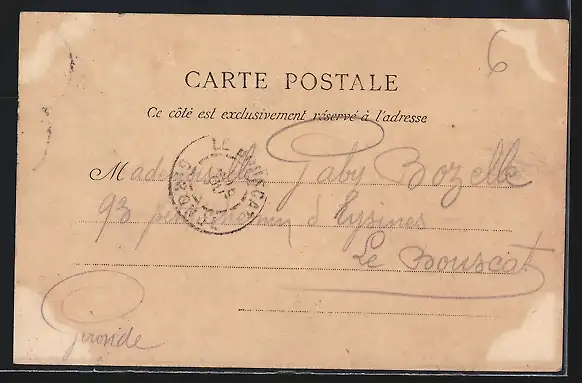 6
CARTE POSTALE
Ce côté est exclusivement réservé à l'adresse
LE BOUSCAT
GIRONDE
Mademoiselle Gaby Bozelle
93 chemin d'Eysines
Le Bouscat
Gironde